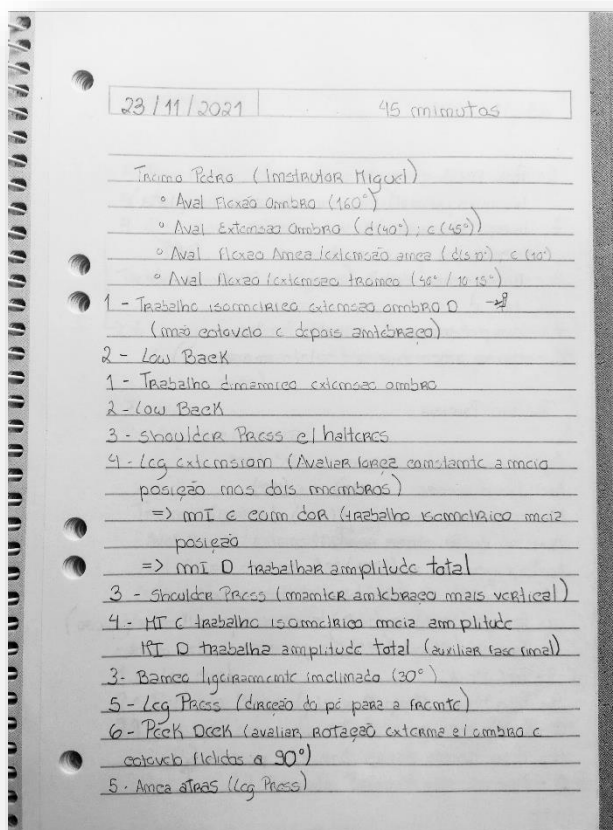 23/11/2021 45 minutos
Treino Pedro (Instrutor Miguel)
° Aval Flexão Ombro (160°)
° Aval Extensão Ombro (d(40°) ; e(45°))
° Aval Flexão Anca/extensão anca ( e (10°)
° Aval Flexão/extensão tronco (
1 - Trabalho isométrico extensão ombro D
(mão cotovelo e depois antebraço)
2 - Low Back
1 - Trabalho dinâmico extensão ombro
2 - Low Back
3 - Shoulder Press c/halteres
4 - Leg extension (Avaliar força constante a meia
posição nos dois membros)
=> MI E com dor (trabalho isométrico meia
posição
=> MI D trabalhar amplitude total
3 - Shoulder Press (manter antebraço mais vertical)
4 - MI E trabalho isométrico meia amplitude
MI D trabalha amplitude total (auxiliar fase final)
3 - Banco ligeiramente inclinado (30°)
5 - Leg Press (direção do pé para a frente)
6 - Peck Deck (avaliar rotação externa c/ ombro e
cotovelo fletidos a 90°)
5 - Anca atrás (Leg Press)